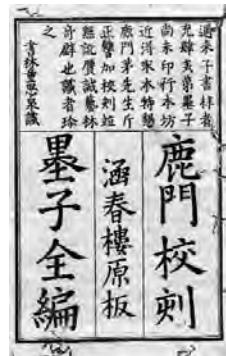 邇來子書梓者
充肆矣第墨子
尚未印行本坊
近得宋本特懇
鹿門茅先生斤
正讐加校刻並
無訛贋誠藝林
奇辟也識者珍
之
書林童思泉識
鹿門校刻
涵春樓原板
墨子全編